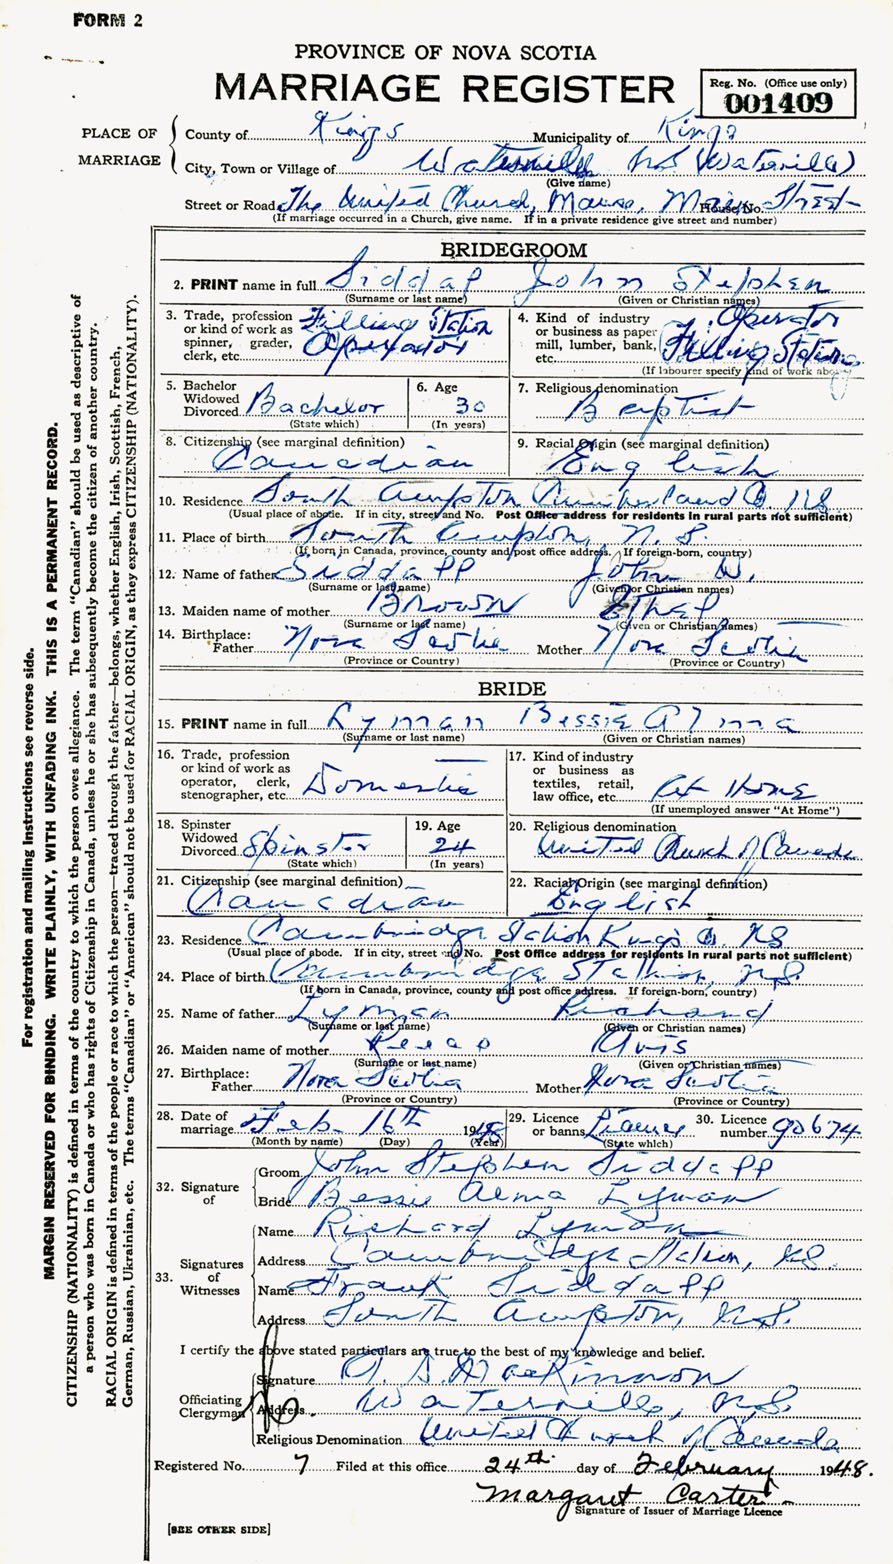 FORM 2
PROVINCE OF NOVA SCOTIA
MARRIAGE REGISTER
Reg. No. (Office use only)
001409
PLACE OF MARRIAGE
County of Kings Municipality of Kings
City, Town or Village of Waterville NS (Waterville)
(Give name)
Street or Road The United Church, Manse, Main Street House No.
(If marriage occurred in a Church, give name. If in a private residence give street and number)
BRIDEGROOM
2. PRINT name in full Siddall John Stephen
(Surname or last name) (Given or Christian names)
3. Trade, profession or kind of work as spinner, grader, clerk, etc. Filling Station Operator
4. Kind of industry or business as paper mill, lumber, bank, etc. Operator Filling Station
(If labourer specify kind of work above)
5. Bachelor Widowed Divorced Bachelor
(State which)
6. Age 30
(In years)
7. Religious denomination
Baptist
8. Citizenship (see marginal definition)
Canadian
9. Racial Origin (see marginal definition)
English
10. Residence South Hampton Cumberland Co NS
(Usual place of abode. If in city, street and No. Post Office address for residents in rural parts not sufficient)
11. Place of birth South Hampton, N.S.
(If born in Canada, province, county and post office address. If foreign-born, country)
12. Name of father Siddall John W.
(Surname or last name) (Given or Christian names)
13. Maiden name of mother Brown Ethel
(Surname or last name) (Given or Christian names)
14. Birthplace:
Father Nova Scotia Mother Nova Scotia
(Province or Country) (Province or Country)
BRIDE
15. PRINT name in full Lyman Bessie Alma
(Surname or last name) (Given or Christian names)
16. Trade, profession or kind of work as operator, clerk, stenographer, etc. Domestic
17. Kind of industry or business as textiles, retail, law office, etc. At Home
(If unemployed answer "At Home")
18. Spinster Widowed Divorced Spinster
(State which)
19. Age 24
(In years)
20. Religious denomination
United Church of Canada
21. Citizenship (see marginal definition)
Canadian
22. Racial Origin (see marginal definition)
English
23. Residence Cambridge Station Kings Co. NS
(Usual place of abode. If in city, street and No. Post Office address for residents in rural parts not sufficient)
24. Place of birth Cambridge Station, N.S.
(If born in Canada, province, county and post office address. If foreign-born, country)
25. Name of father Lyman Richard
(Surname or last name) (Given or Christian names)
26. Maiden name of mother Avis
(Surname or last name) (Given or Christian names)
27. Birthplace:
Father Nova Scotia Mother Nova Scotia
(Province or Country) (Province or Country)
28. Date of marriage Feb. 16th 1948
(Month by name) (Day) (Year)
29. Licence or banns License
(State which)
30. Licence number 90674
32. Signature of
Groom John Stephen Siddall
Bride Bessie Alma Lyman
33. Signatures of Witnesses
Name Richard Lyman
Address Cambridge Station, NS.
Name Frank Siddall
Address South Hampton, N.S.
I certify the above stated particulars are true to the best of my knowledge and belief.
Officiating Clergyman
Signature A. D. MacKinnon
Address Waterville, N.S.
Religious Denomination United Church of Canada
Registered No. 7 Filed at this office 24th day of February 1948.
Margaret Carter
Signature of Issuer of Marriage Licence
[SEE OTHER SIDE]
For registration and mailing instructions see reverse side.
MARGIN RESERVED FOR BINDING. WRITE PLAINLY, WITH UNFADING INK. THIS IS A PERMANENT RECORD.
CITIZENSHIP (NATIONALITY) is defined in terms of the country to which the person owes allegiance. The term "Canadian" should be used as descriptive of
a person who was born in Canada or who has rights of Citizenship in Canada, unless he or she has subsequently become the citizen of another country.
RACIAL ORIGIN is defined in terms of the people or race to which the person—traced through the father—belongs, whether English, Irish, Scottish, French,
German, Russian, Ukrainian, etc. The terms "Canadian" or "American" should not be used for RACIAL ORIGIN, as they express CITIZENSHIP (NATIONALITY).